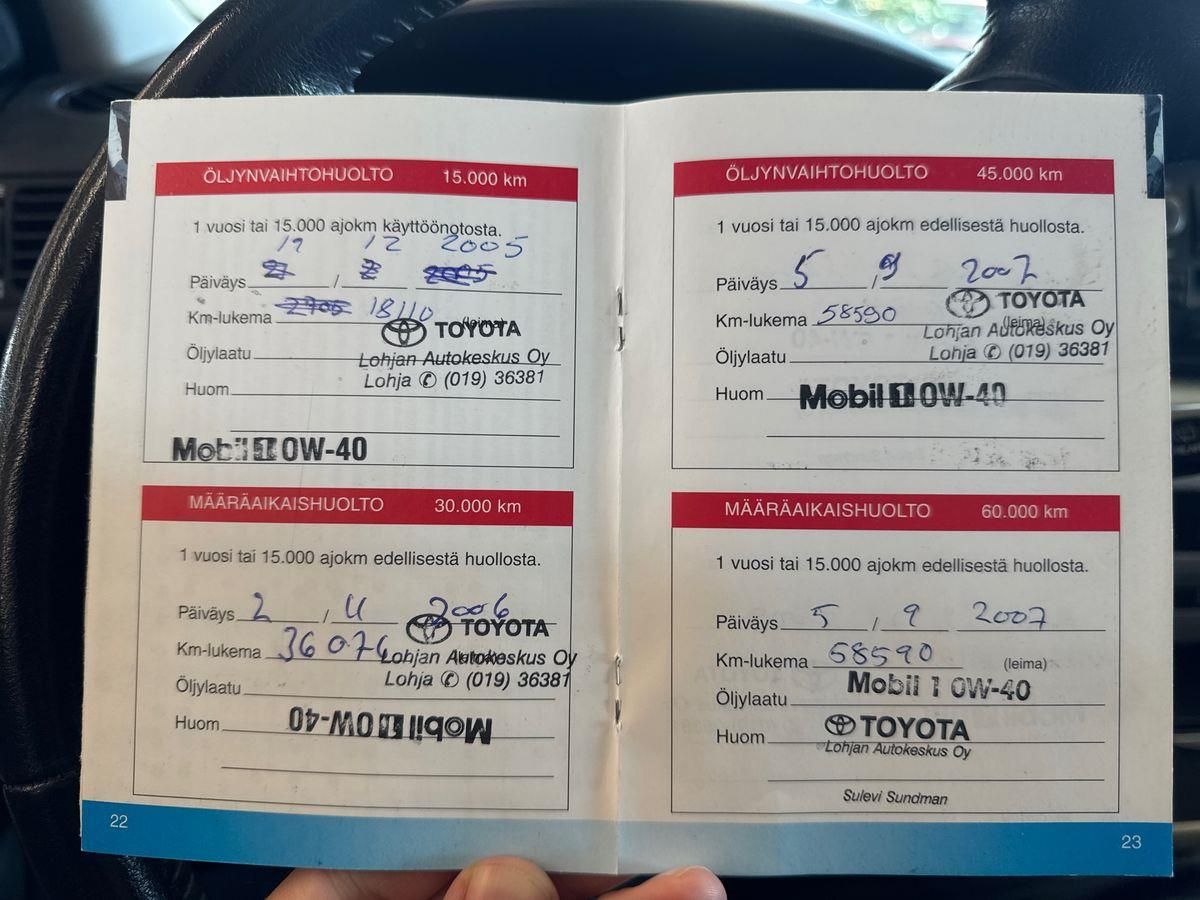 ÖLJYNVAIHTOHUOLTO 15.000 km
1 vuosi tai 15.000 ajokm käyttöönotosta.
19 12 2005
Päiväys 2 / 2 2005
Km-lukema 2705 18110 (leima)
TOYOTA
Öljylaatu
Lohjan Autokeskus Oy
Lohja ✆ (019) 36381
Huom
Mobil 1 0W-40
MÄÄRÄAIKAISHUOLTO 30.000 km
1 vuosi tai 15.000 ajokm edellisestä huollosta.
Päiväys 2 / 11 2006
TOYOTA
Km-lukema 36074
Lohjan Autokeskus Oy
Öljylaatu
Lohja ✆ (019) 36381
Huom
Mobil 1 0W-40
22
ÖLJYNVAIHTOHUOLTO 45.000 km
1 vuosi tai 15.000 ajokm edellisestä huollosta.
Päiväys 5 / 9 2007
TOYOTA
Km-lukema 58590 (leima)
Lohjan Autokeskus Oy
Öljylaatu
Lohja ✆ (019) 36381
Huom
Mobil 1 0W-40
MÄÄRÄAIKAISHUOLTO 60.000 km
1 vuosi tai 15.000 ajokm edellisestä huollosta.
Päiväys 5 / 9 2007
Km-lukema 58590 (leima)
Öljylaatu Mobil 1 0W-40
Huom TOYOTA
Lohjan Autokeskus Oy
Sulevi Sundman
23